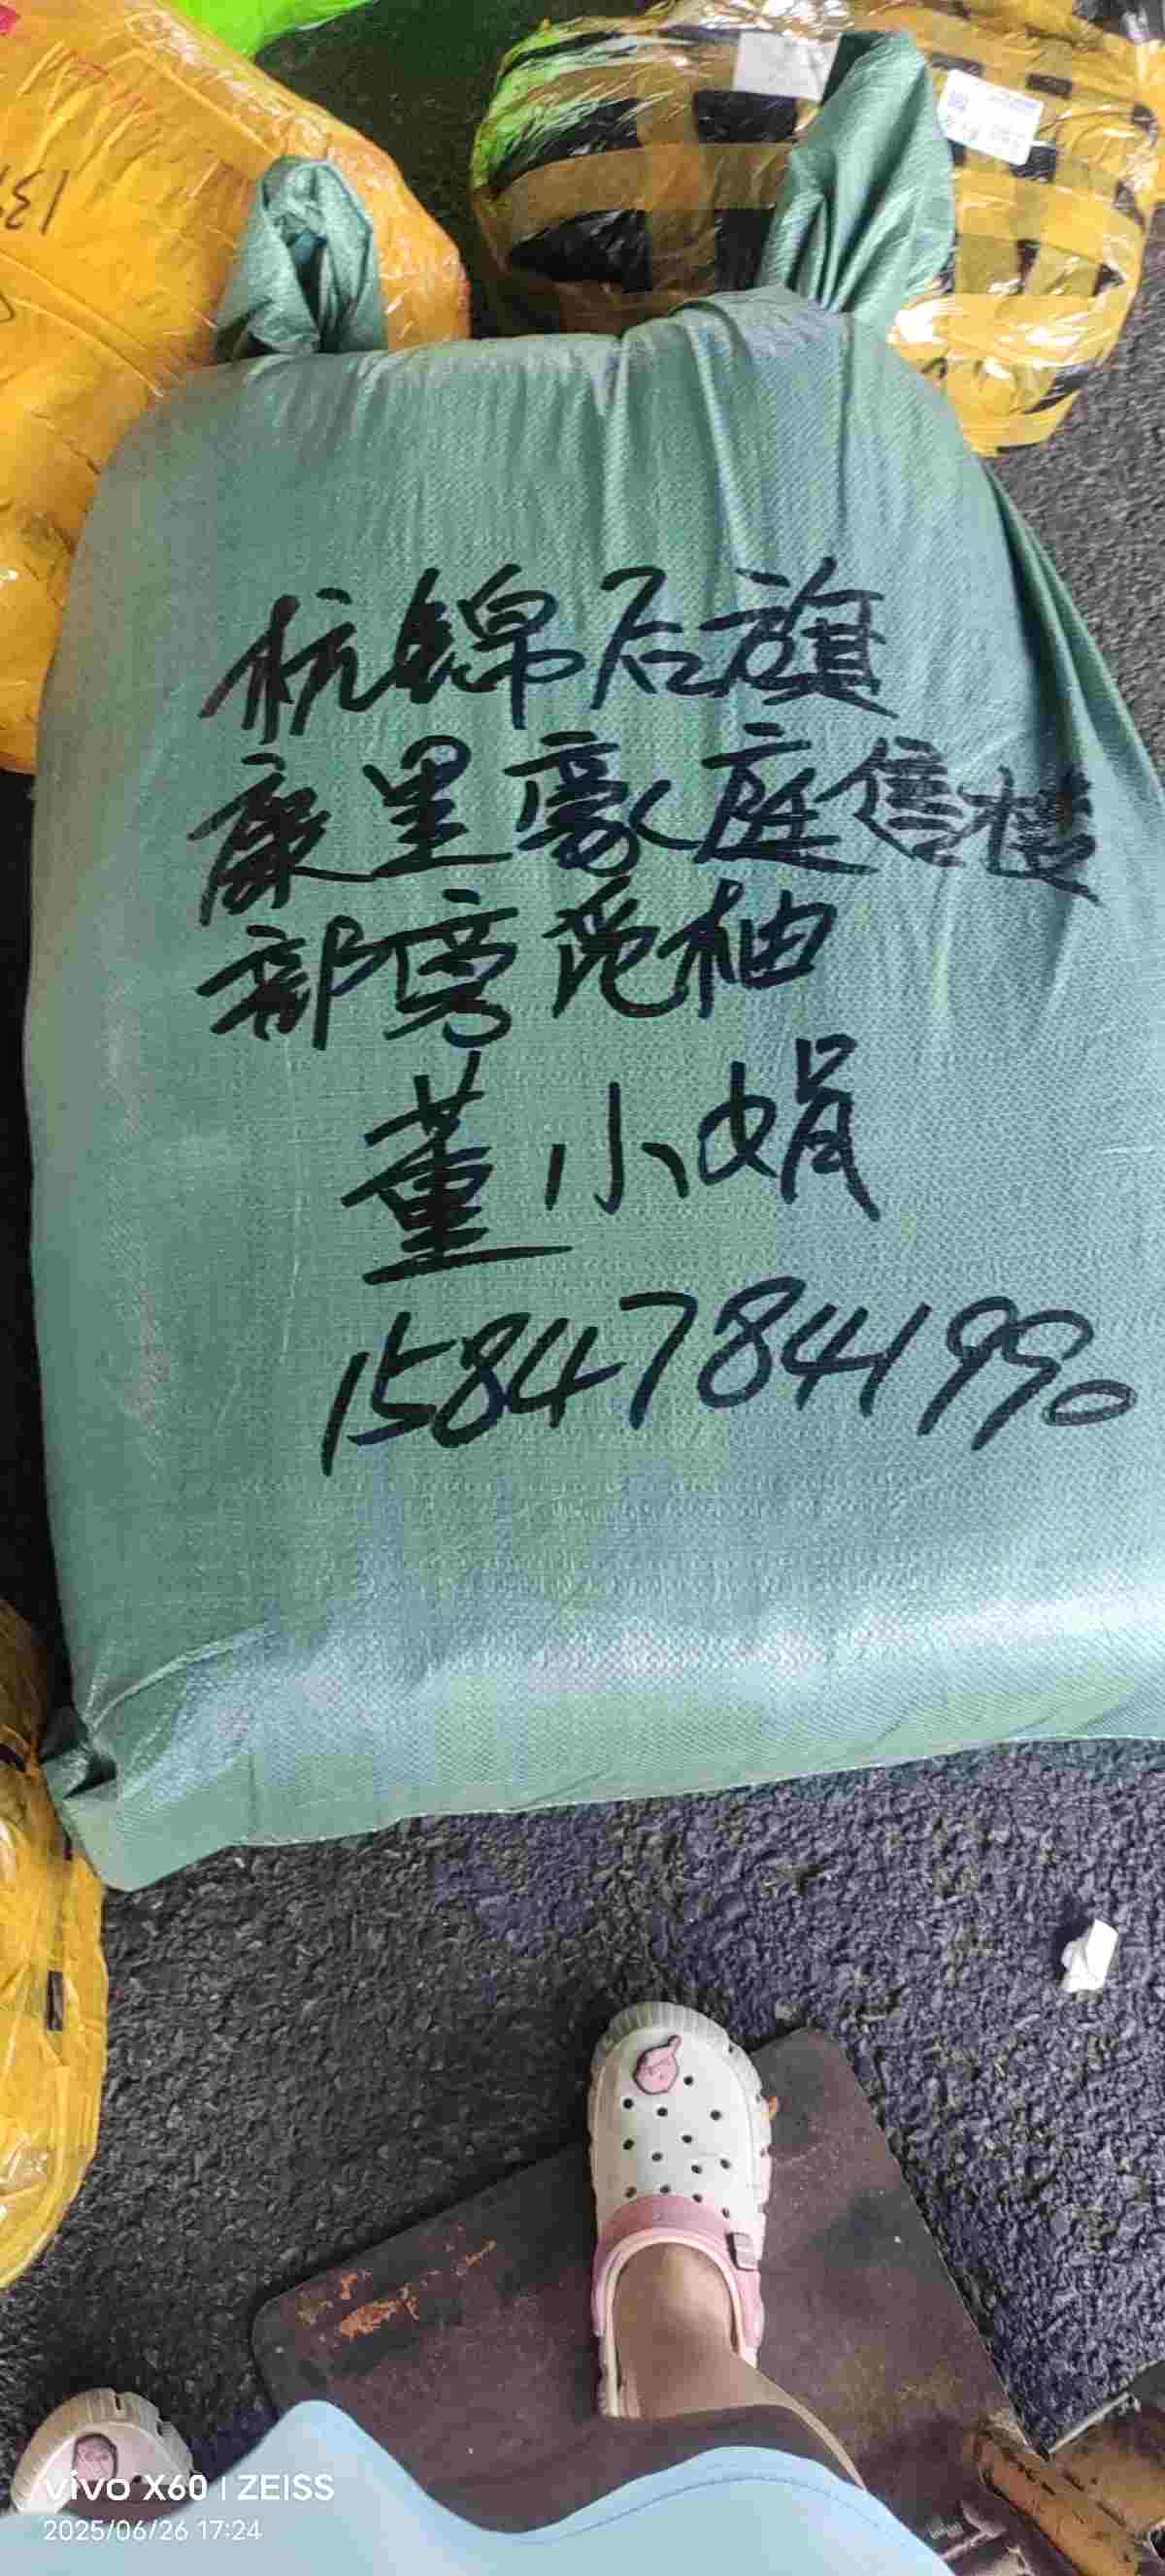 杭锦后旗
康里豪庭售楼
部旁苑柚
董小娟
15847841990
vivo X60 | ZEISS
2025/06/26 17:24